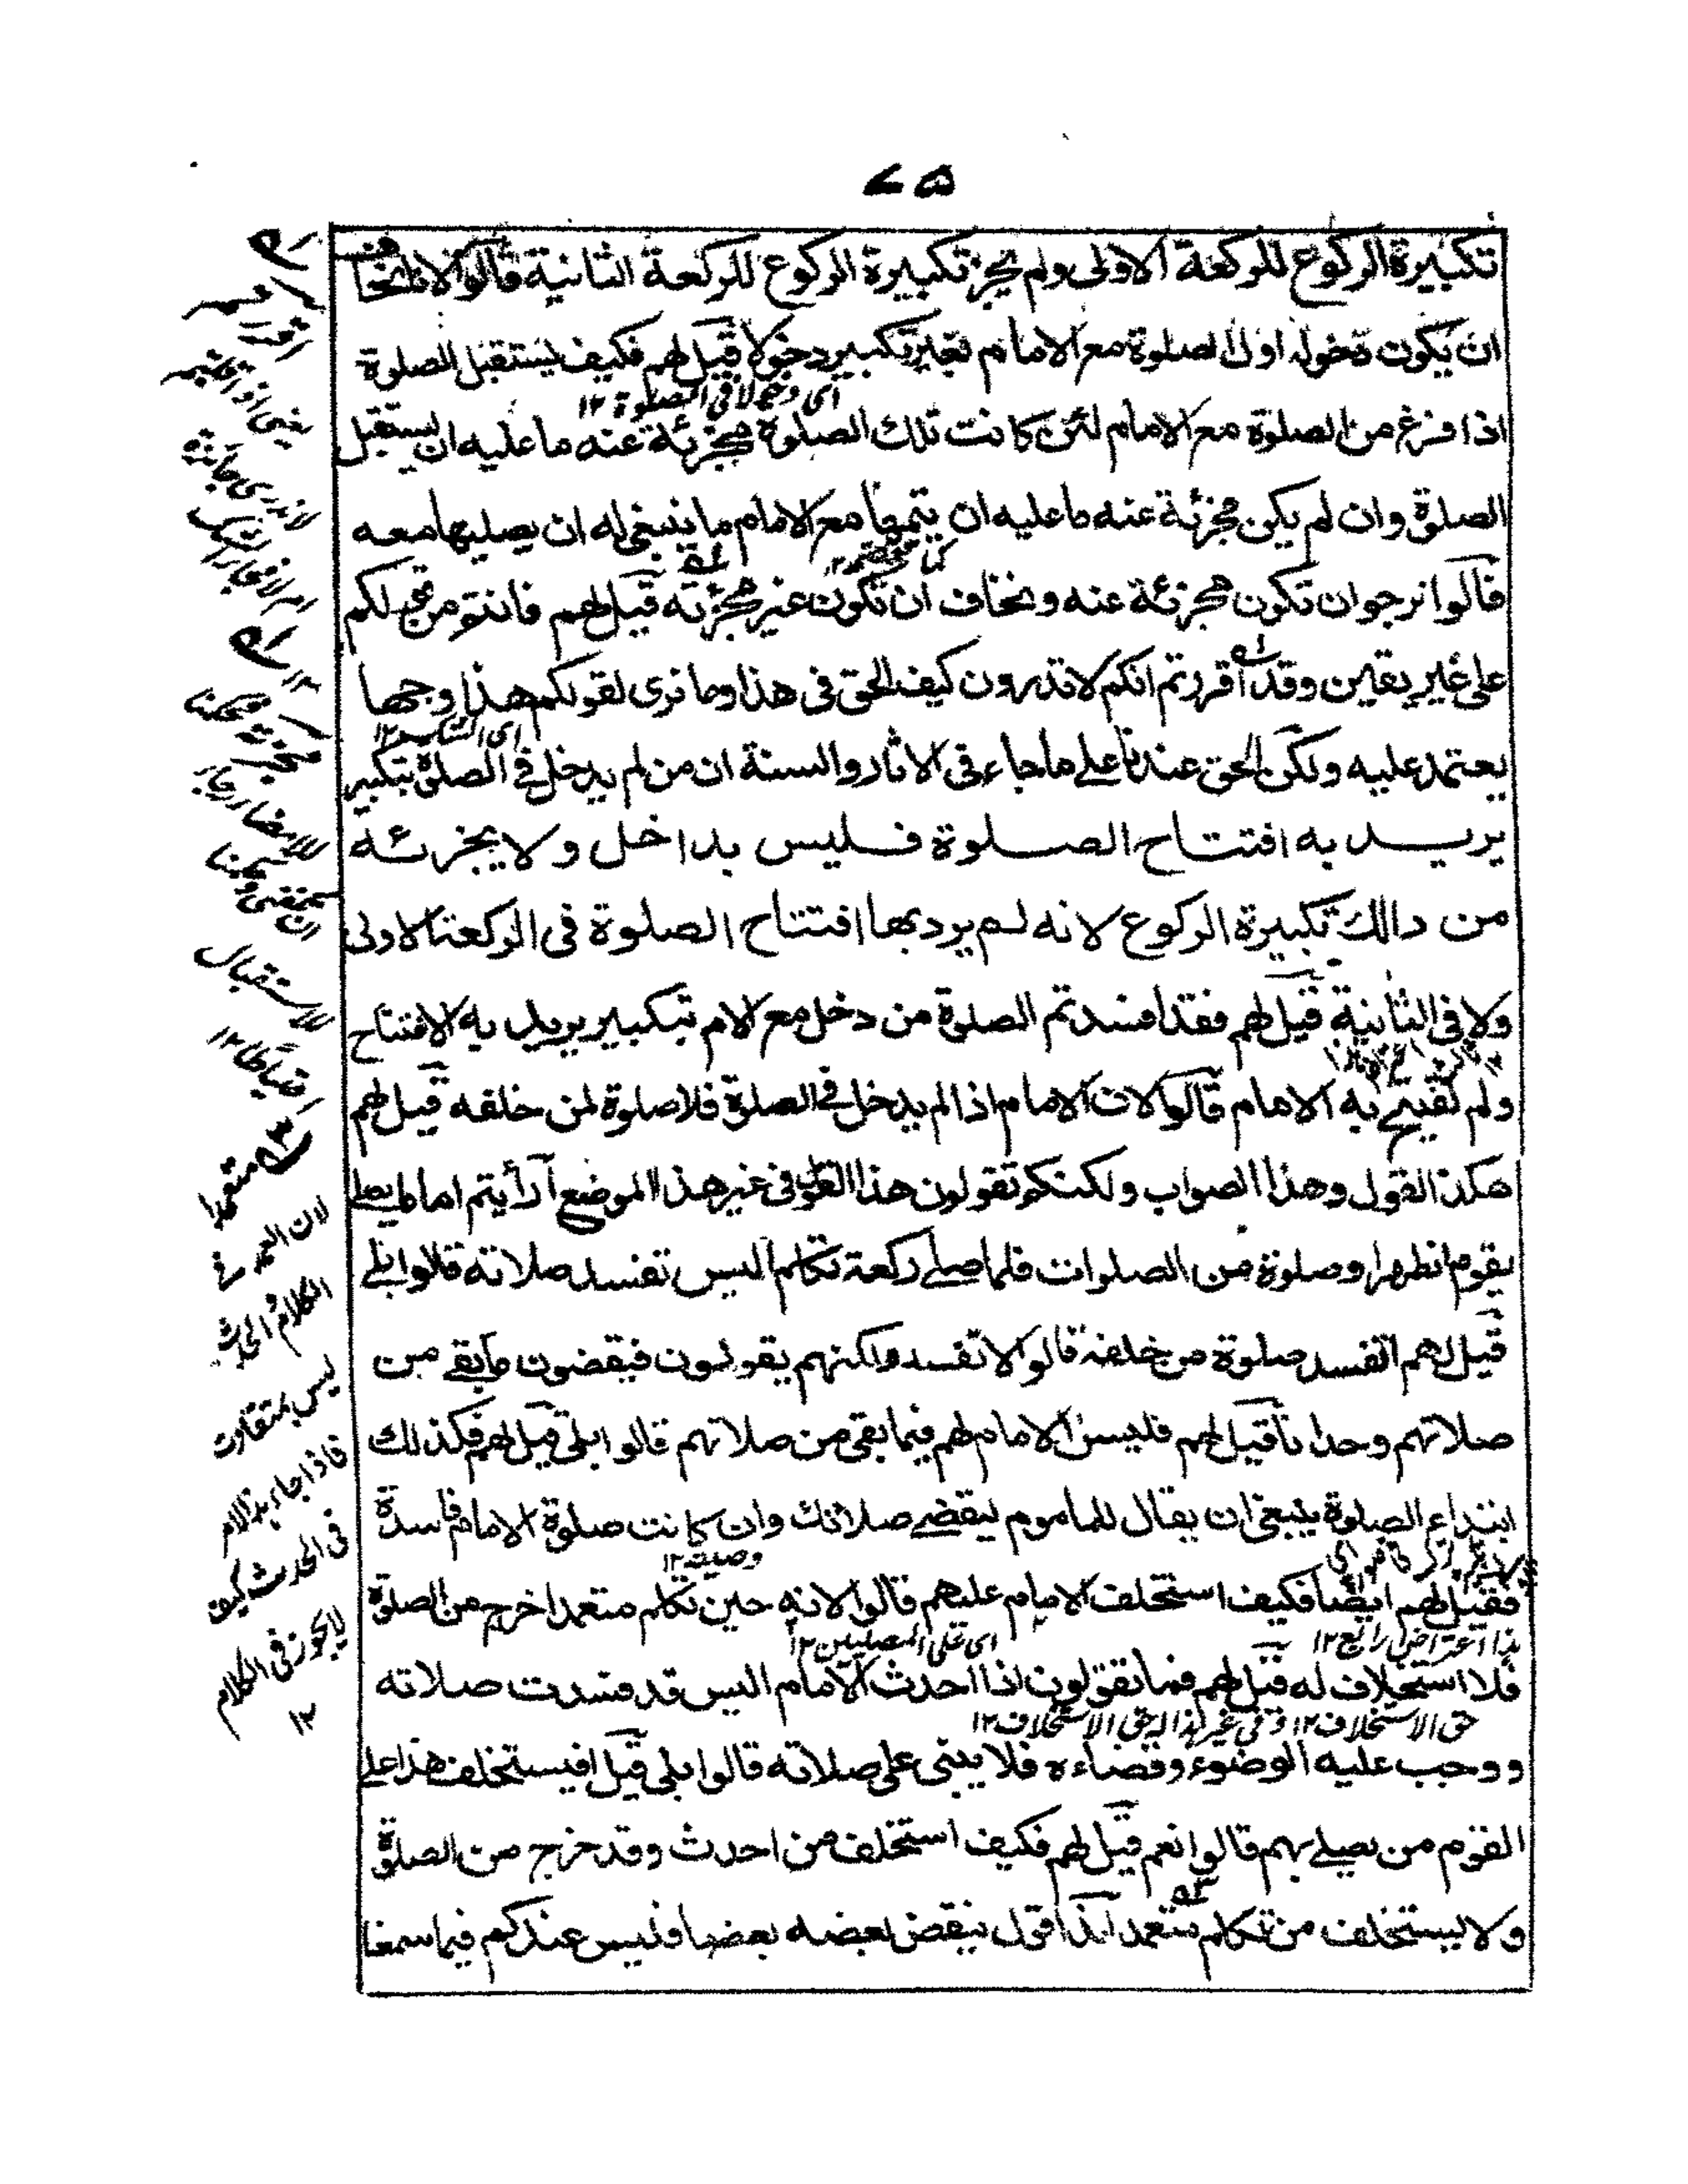 ۷۵
تكبيرة الركوع للركعة الاولى ولم يجز تكبيرة الركوع للركعة الثانية قالوا لانا نخاف
ان يكون دخوله اول الصلوة مع الامام بغير تكبير دخولا قيل لهم فكيف يستقبل الصلوة
اى دخولا فى الصلوة ١٢
اذا فرغ من الصلوة مع الامام لئن كانت تلك الصلوة مجزئة عنه ما عليه ان يستقبل
الصلوة وان لم يكن مجزئة عنه ما عليه ان يتمها مع الامام ما ينبغى له ان يصليها معه
قالوا نرجوان تكون مجزئة عنه ونخاف ان تكون غير مجزئة قيل لهم فانتم من قولكم
على غير يقين وقد اقررتم انكم لا تدرون كيف الحق فى هذا وما نرى لقولكم هذا وجها
يعتمد عليه ولكن الحق عندنا على ما جاء فى الاثار والسنة ان من لم يدخل فى الصلوة بتكبير
يريد به افتتاح الصلوة فليس بداخل ولا يجزئه
من ذالك تكبيرة الركوع لانه لم يرد بها افتتاح الصلوة فى الركعة الاولى
ولا فى الثانية قيل لهم فقد افسدتم الصلوة من دخل مع الامام بتكبير يريد به الافتتاح
ولم يفتتح به الامام قالوا لان الامام اذا لم يدخل فى الصلوة فلا صلوة لمن خلفه قيل لهم
هكذا القول وهذا الصواب ولكنكم تقولون هذا القول فى غير هذا الموضع أرأيتم اماما يصلى
بقوم ظهرا وصلوة من الصلوات فلما صلى ركعة تكلم اليس تفسد صلاته قالوا بلى
قيل لهم اتفسد صلوة من خلفه قالوا لا تفسد ولكنهم يقولون فيقضون ما بقى من
صلاتهم وحدانا قيل لهم فليس الامام لهم فيما بقى من صلاتهم قالوا بلى قيل لهم فكذلك
ابتداء الصلوة ينبغى ان يقال للماموم ليقضى صلاتك وان كانت صلوة الامام فاسدة
فقيل لهم ايضا فكيف استخلف الامام عليهم قالوا لانه حين تكلم متعمدا خرج من الصلوة
هذا اعتراض رابع ١٢ اى على المصليين ١٢
فلا استخلاف له قيل لهم فما تقولون اذا احدث الامام اليس قد فسدت صلاته
حق الاستخلاف ١٢ وفى غير هذا له حق الاستخلاف ١٢
ووجب عليه الوضوء وقضاءه فلا يبنى على صلاته قالوا بلى قيل افيستخلف هذا على
القوم من يصلى بهم قالوا نعم قيل لهم فكيف استخلف من احدث وقد خرج من الصلوة
ولا يستخلف من تكلم متعمدا هذا قول ينقض بعضه بعضا وليس عندكم فيما سمعنا
متعمدا
لان العمد فى
الكلام والحدث
ليس بمتفاوت
فاذا جاء بذا الامر
فى الحدث كيف
لا يجوز فى الكلام
١٢